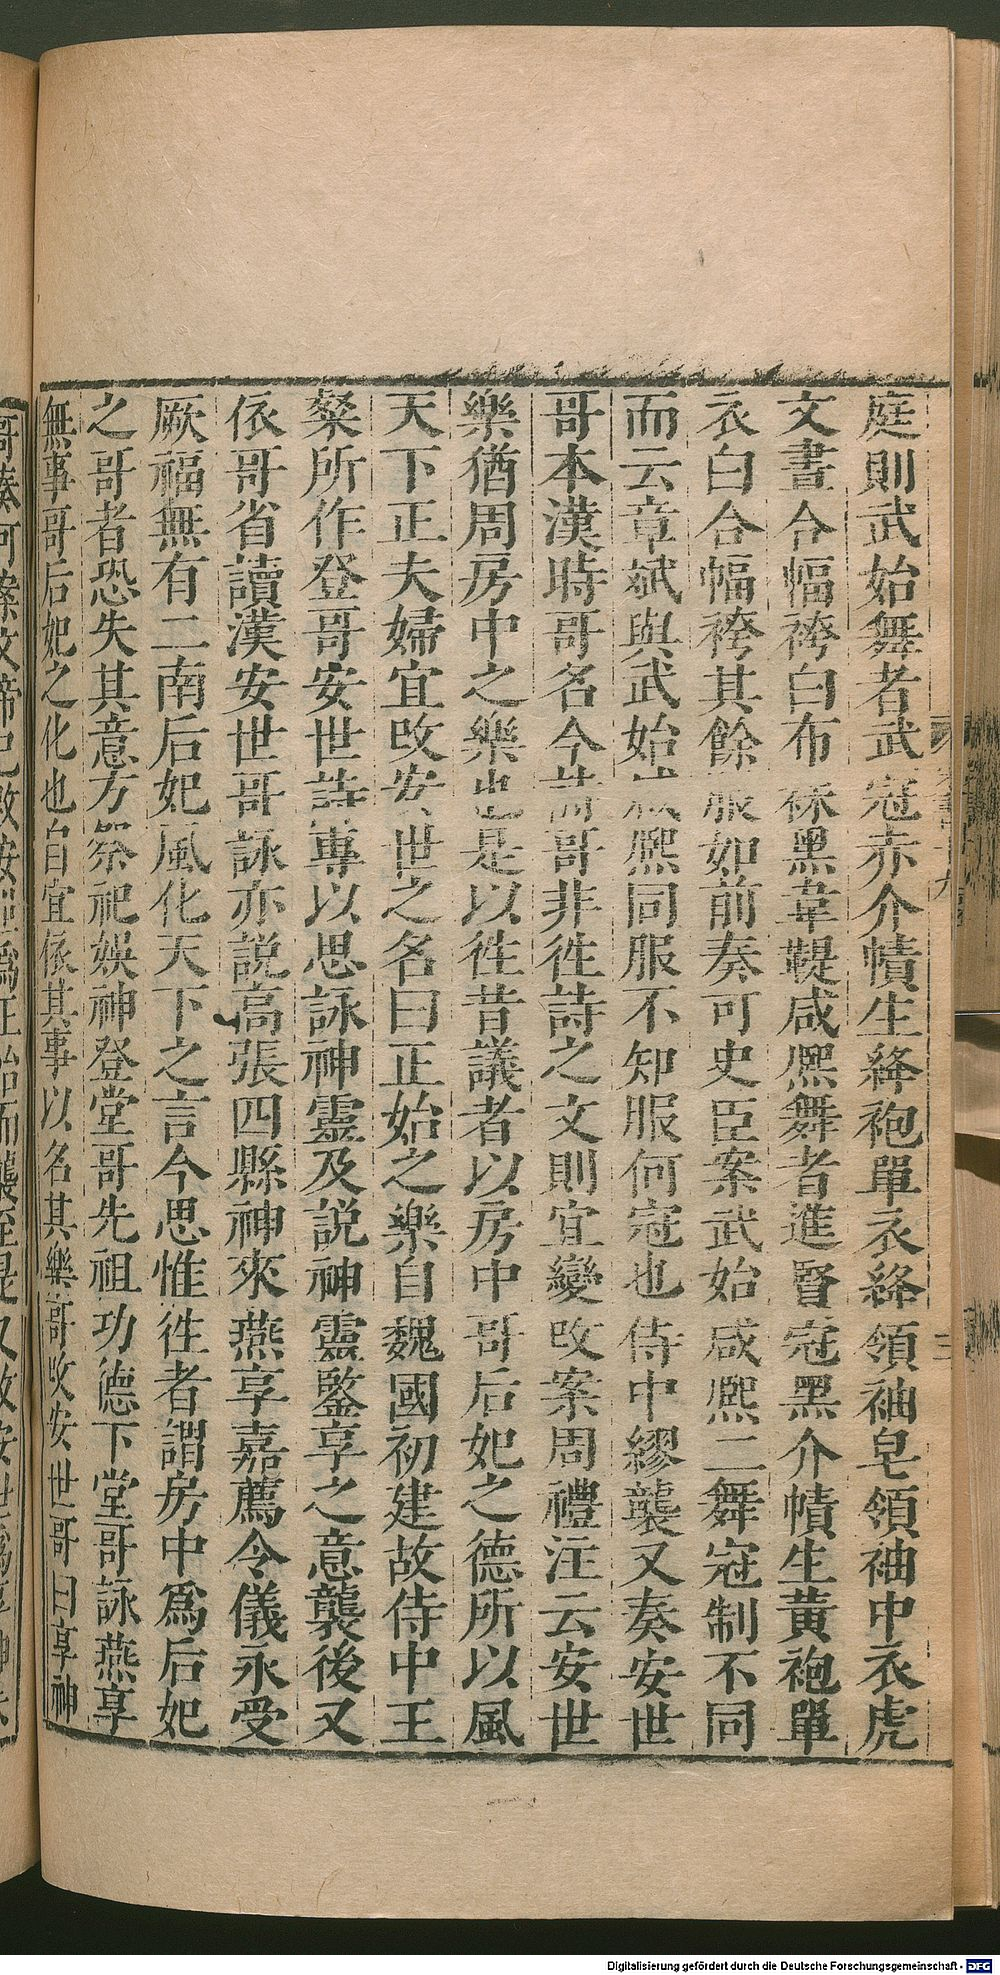 庭則武始舞者武冠赤介幘生絳袍單衣絳領袖皂領袖中衣虎
文畫合幅袴白布襪黑韋鞮咸熙舞者進賢冠黑介幘生黃袍單
衣白合幅袴其餘服如前奏可史臣案武始咸熙二舞冠制不同
而云章斌與武始咸熙同服不知服何冠也侍中繆襲又奏安世
哥本漢時哥名今詩哥非徃詩之文則宜變改案周禮注云安世
樂猶周房中之樂也是以徃昔議者以房中哥后妃之德所以風
天下正夫婦宜改安世之名曰正始之樂自魏國初建故侍中王
粲所作登哥安世詩專以思詠神靈及說神靈鑒享之意襲後又
依哥省讀漢安世哥詠亦說高張四縣神來燕享嘉薦令儀永受
厥福無有二南后妃風化天下之言今思惟徃者謂房中爲后妃
之哥者恐失其意方祭祀娛神登堂哥先祖功德下堂哥詠燕享
無事哥后妃之化也自宜依其事以名其樂哥改安世哥曰享神
Digitalisierung gefördert durch die Deutsche Forschungsgemeinschaft - DFG